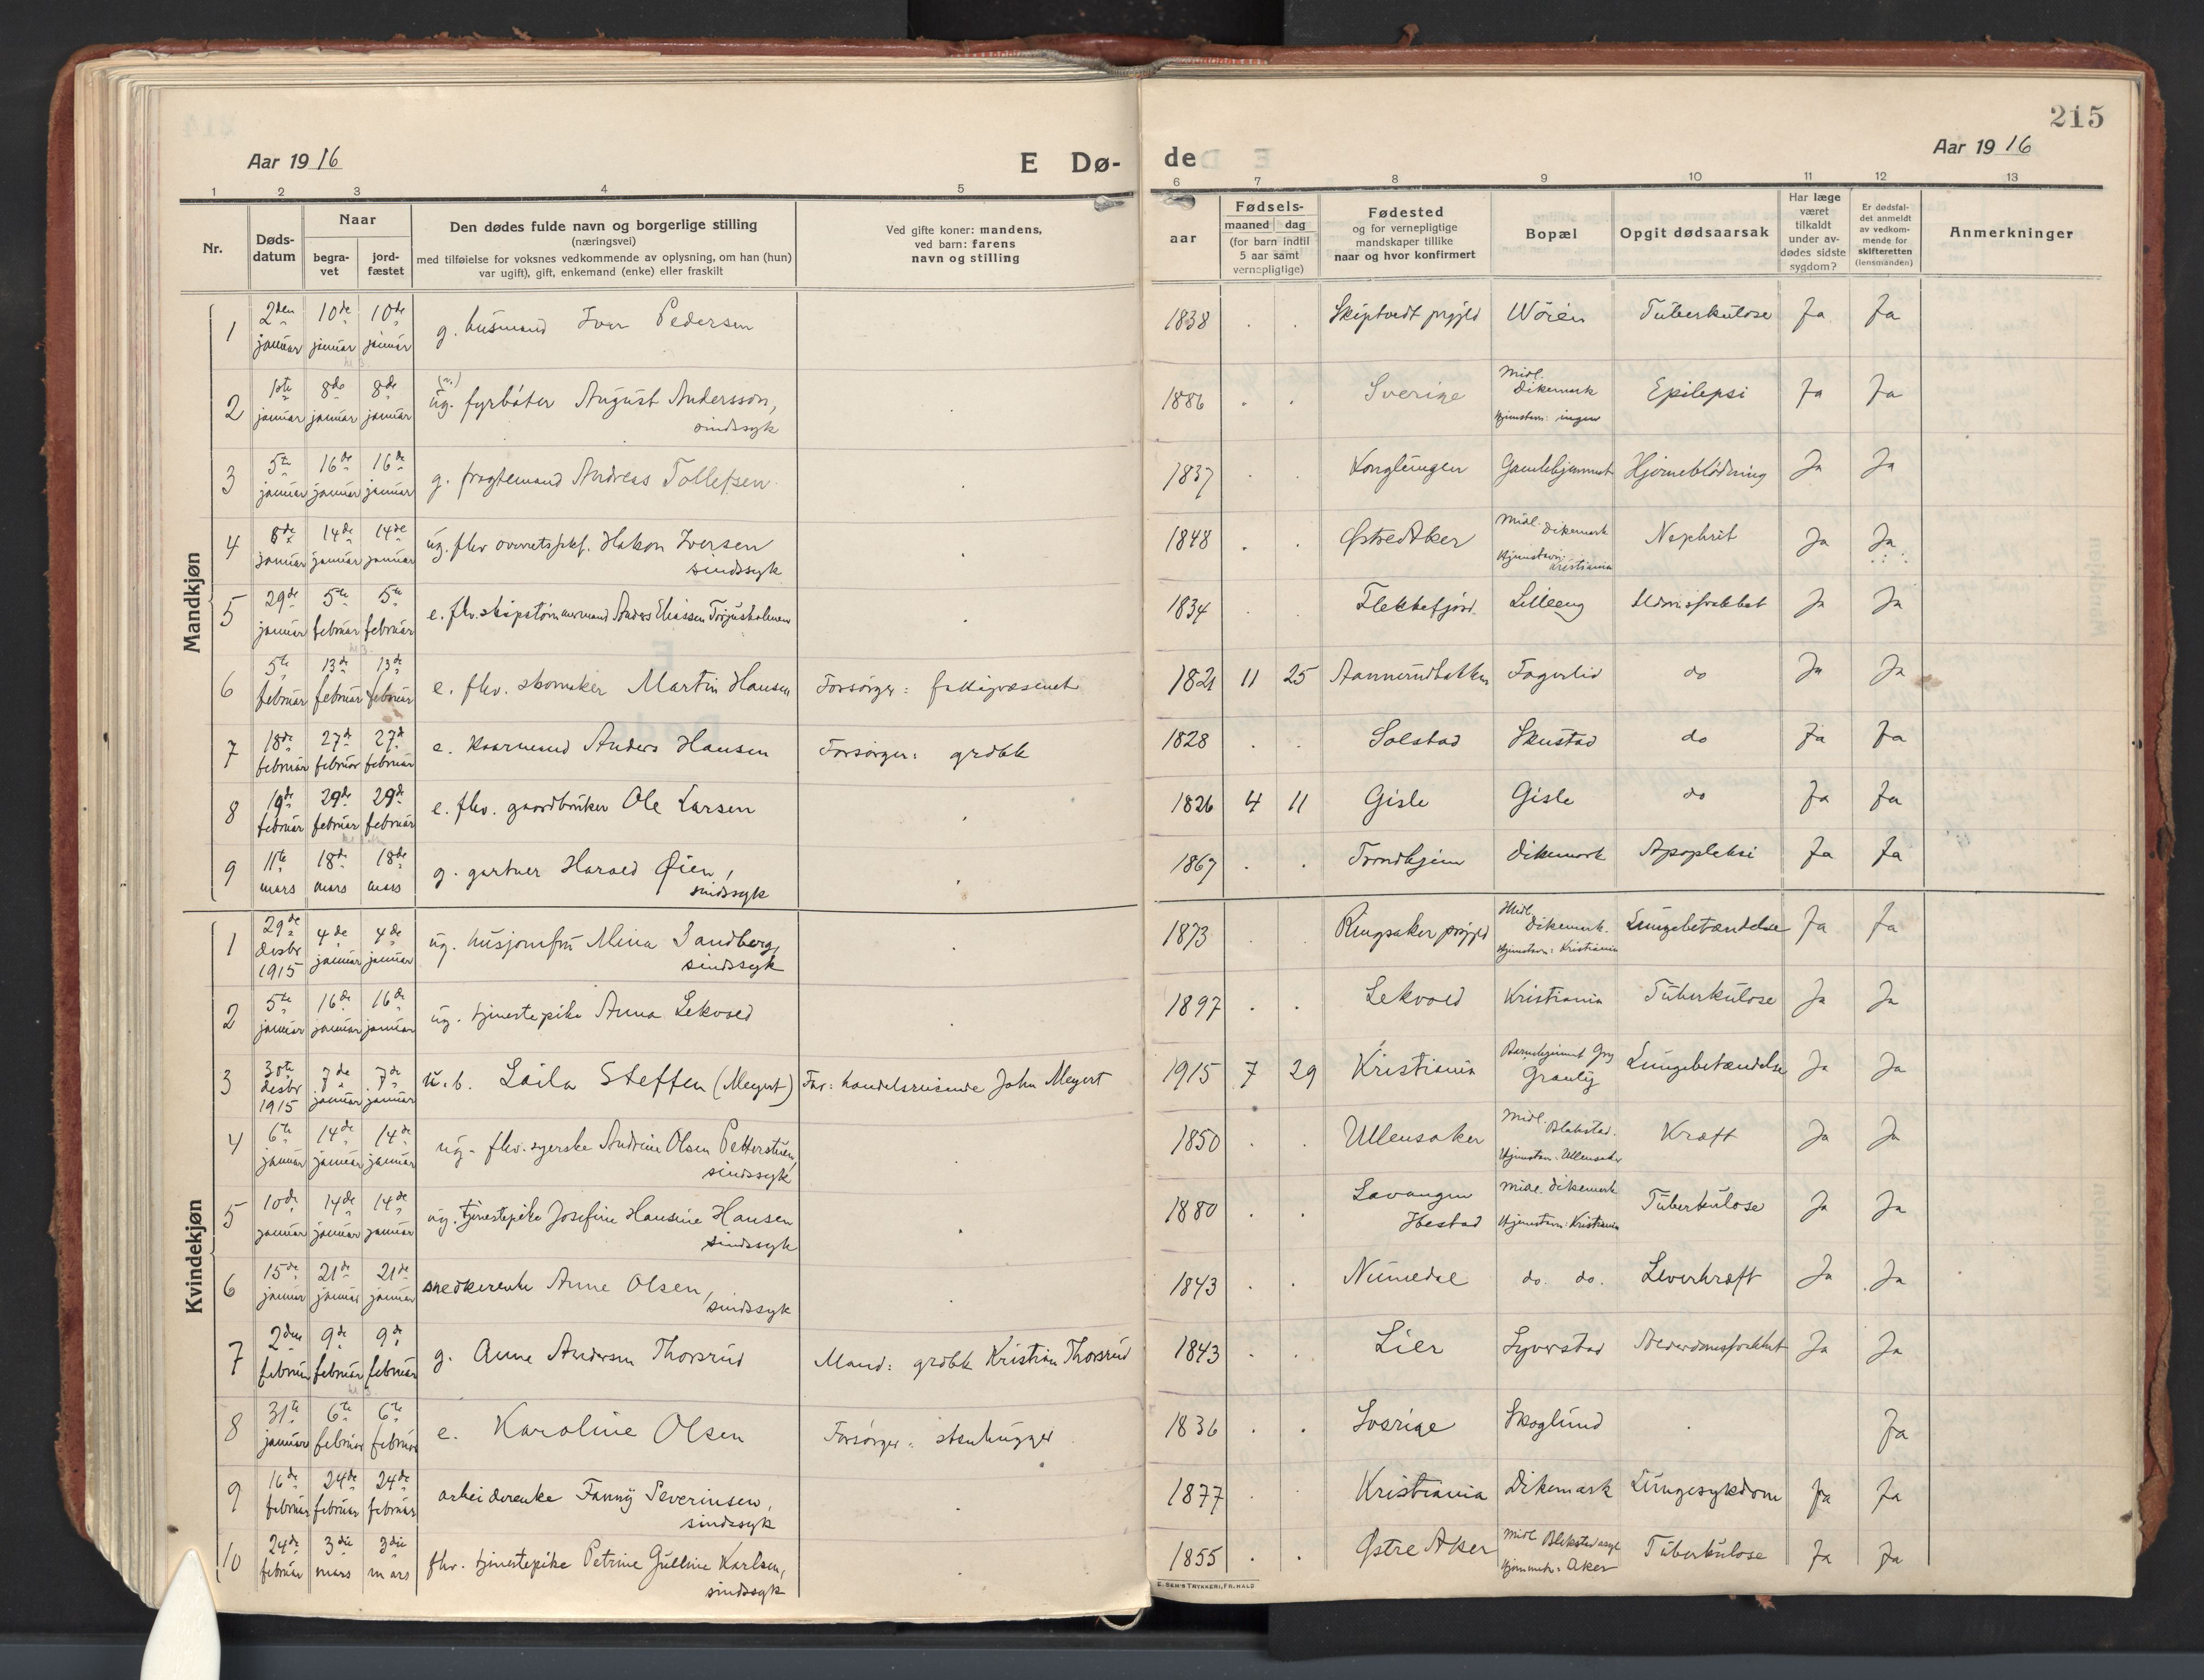 215
Aar 1916
E Dø-
de
Aar 1916
1 2 3 4 5 6 7 8 9 10 11 12 13
Nr.
Døds-
datum
Naar
begra-
vet
jord-
fæstet
Den dødes fulde navn og borgerlige stilling
(næringsvei)
med tilføielse for voksnes vedkommende av oplysning, om han (hun)
var ugift), gift, enkemand (enke) eller fraskilt
Ved gifte koner: mandens,
ved barn: farens
navn og stilling
aar
Fødsels-
maaned dag
(for barn indtil
5 aar samt
vernepligtige)
Fødested
og for vernepligtige
mandskaper tillike
naar og hvor konfirmert
Bopæl
Opgit dødsaarsak
Har læge
været
tilkaldt
under av-
dødes sidste
sygdom?
Er dødsfal-
det anmeldt
av vedkom-
mende for
skifteretten
(lensmanden)
Anmerkninger
Mandkjøn
1 2den januar 10de januar 10de januar g. husmand Iver Pedersen 1838 Skiptvedt prgjld Wøien Tuberkulose Ja Ja
2 1ste januar 8de januar 8de januar ug. fyrbøter August Andersson, sindssyk 1886 Sverige Midl. Dikemark Hjemstavn: ingen Epilepsi Ja Ja
3 5te januar 16de januar 16de januar g. fragtemand Andreas Tollefsen 1837 Konglungen Gamlehjemmet Hjerneblødning Ja Ja
4 8de januar 14de januar 14de januar ug. fhv overretssakf. Hakon Iversen sindssyk 1848 Østre Aker Midl. Dikemark Hjemstavn: Kristiania Nephrit Ja Ja
5 29de januar 5te februar 5te februar e. fhv. skipstømmermand Anders Eliassen Torjusholmen 1834 Flekkefjord Lilleeng Ja Ja
6 5te februar 13de februar 13de februar e. fhv. skomaker Martin Hansen Forsørger: fattigvæsenet 1821 11 25 Aannerudbakken Fagerlid do Ja Ja
7 18de februar 27de februar 27de februar e. Anders Hansen Forsørger: grdbk 1828 Solstad Skustad do Ja Ja
8 19de februar 29de februar 29de februar e. fhv. gaardbruker Ole Larsen 1826 4 11 Gisle Gisle do Ja Ja
9 11te mars 18de mars 18de mars g. gartner Harald Øien, sindssyk 1867 Trondhjem Dikemark Apopleksi Ja Ja
Kvindekjøn
1 29de desbr 1915 4de januar 4de januar ug. husjomfru Mina Sandberg, sindssyk 1873 Ringsaker prgjld Midl. Dikemark. Hjemstavn: Kristiania Lungebetændelse Ja Ja
2 5te januar 16de januar 16de januar ug. tjenestepike Anna Lekvold 1897 Lekvold Kristiania Tuberkulose Ja Ja
3 30te desbr 1915 7de januar 7de januar u.b. Laila Steffen (Meyert) Far: handelsreisende John Meyert 1915 7 29 Kristiania Barnehjemmet Gry Granly Lungebetændelse Ja Ja
4 6te januar 14de januar 14de januar ug. fhv. syerske Andrine Olsen Petterstuen, sindssyk 1850 Ullensaker Midl. Blakstad. Hjemstavn: Ullensaker Kræft Ja Ja
5 10de januar 14de januar 14de januar ug. tjenestepike Josefine Hansine Hansen sindssyk 1880 Lavangen Ibestad Midl. Dikemark Hjemstavn: Kristiania Tuberkulose Ja Ja
6 15de januar 21de januar 21de januar snedkerenke Anne Olsen, sindssyk 1843 Numedal do. do. Leverkræft Ja Ja
7 2den februar 9de februar 9de februar g. Anne Andersen Thorsrud Mand: grdbk Kristian Thorsrud 1843 Lier Syverstad Alderdomssvakhet Ja Ja
8 31te januar 6te februar 6te februar e. Karoline Olsen Forsørger: stenhugger 1836 Sverige Skoglund Ja
9 16de februar 24de februar 24de februar arbeiderenke Fanny Severinsen, sindssyk 1877 Kristiania Dikemark Lungesykdom Ja Ja
10 24de februar 3die mars 3die mars fhv. tjenestepike Petrine Gulline Karlsen, sindssyk 1855 Østre Aker Midl. Blakstad asyl Hjemmeh: Aker Tuberkulose Ja Ja
E. SEM'S TRYKKERI, FR.HALD